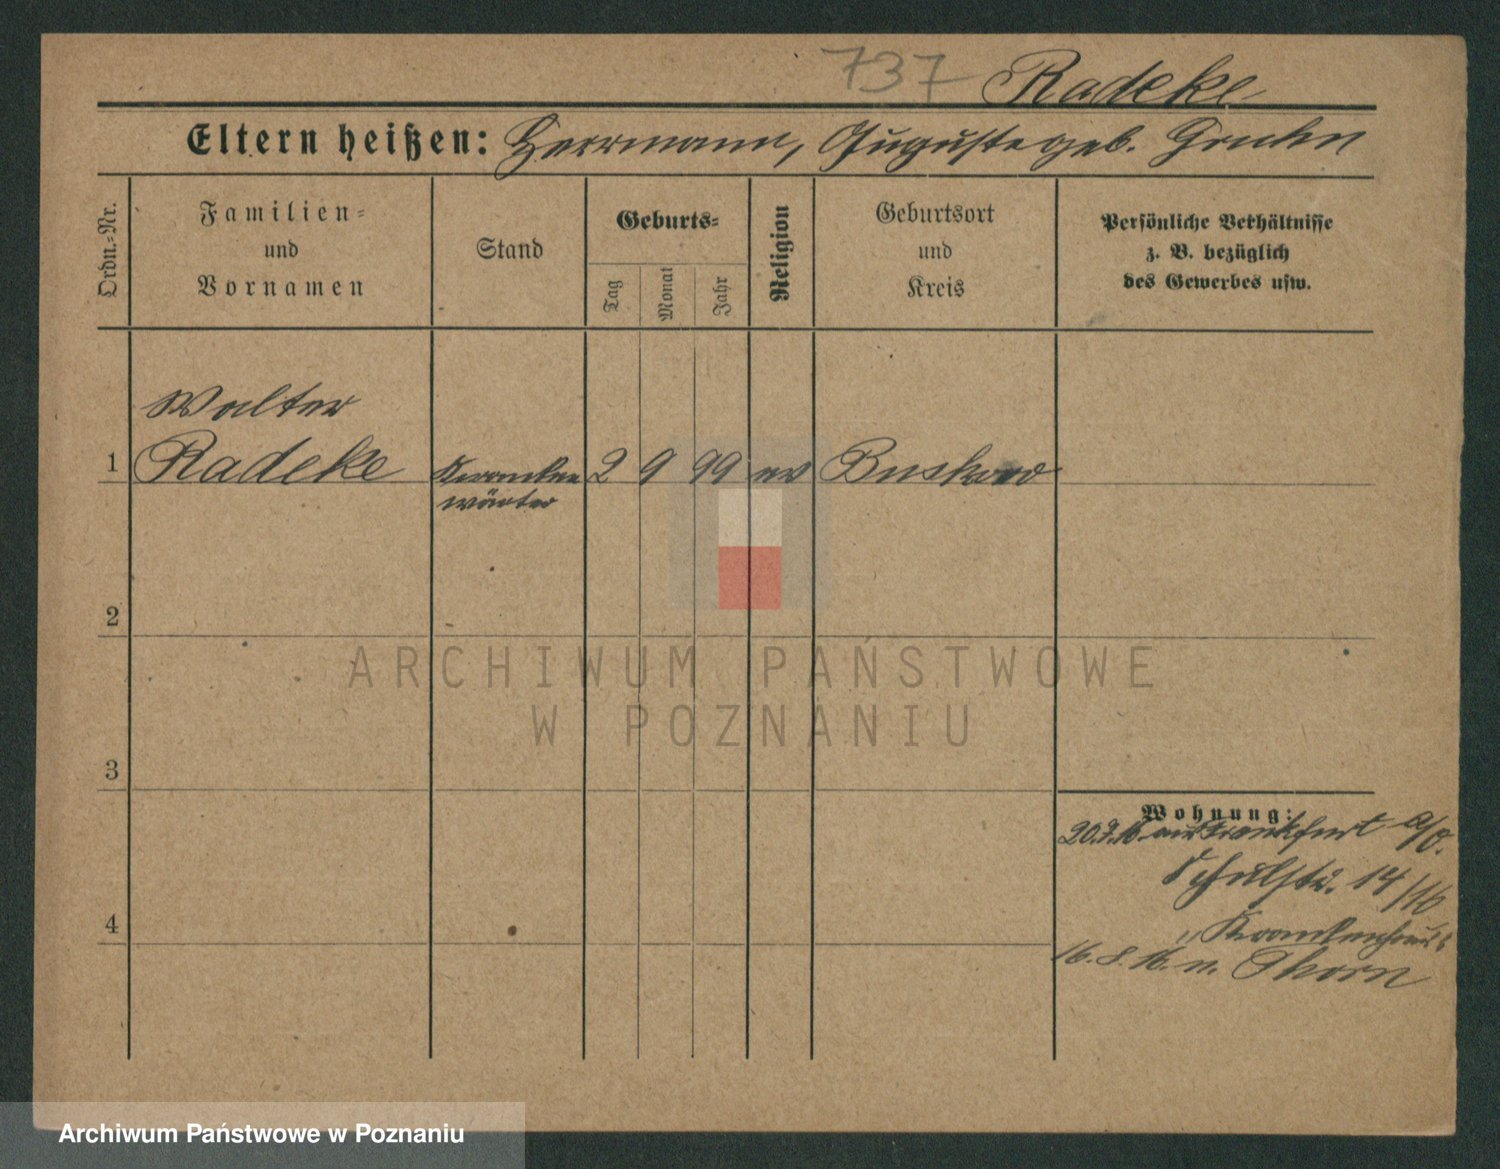 737 Radeke
Eltern heißen: Herrmann, Auguste geb. Gruhn
Ordn.-Nr.
Familien-
und
Vornamen
Stand
Geburts-
Tag
Monat
Jahr
Religion
Geburtsort
und
Kreis
Persönliche Verhältnisse
z. B. bezüglich
des Gewerbes usw.
Walter
1 Radeke Kranken 2 9 99 ev
wärter
2
3
4
Wohnung:
aus Frankfurt a/O.
Schulstr. 14/16
" Krankenhaus
16. 8. 16. n. Thorn
ARCHIWUM PAŃSTWOWE
W POZNANIU
Archiwum Państwowe w Poznaniu